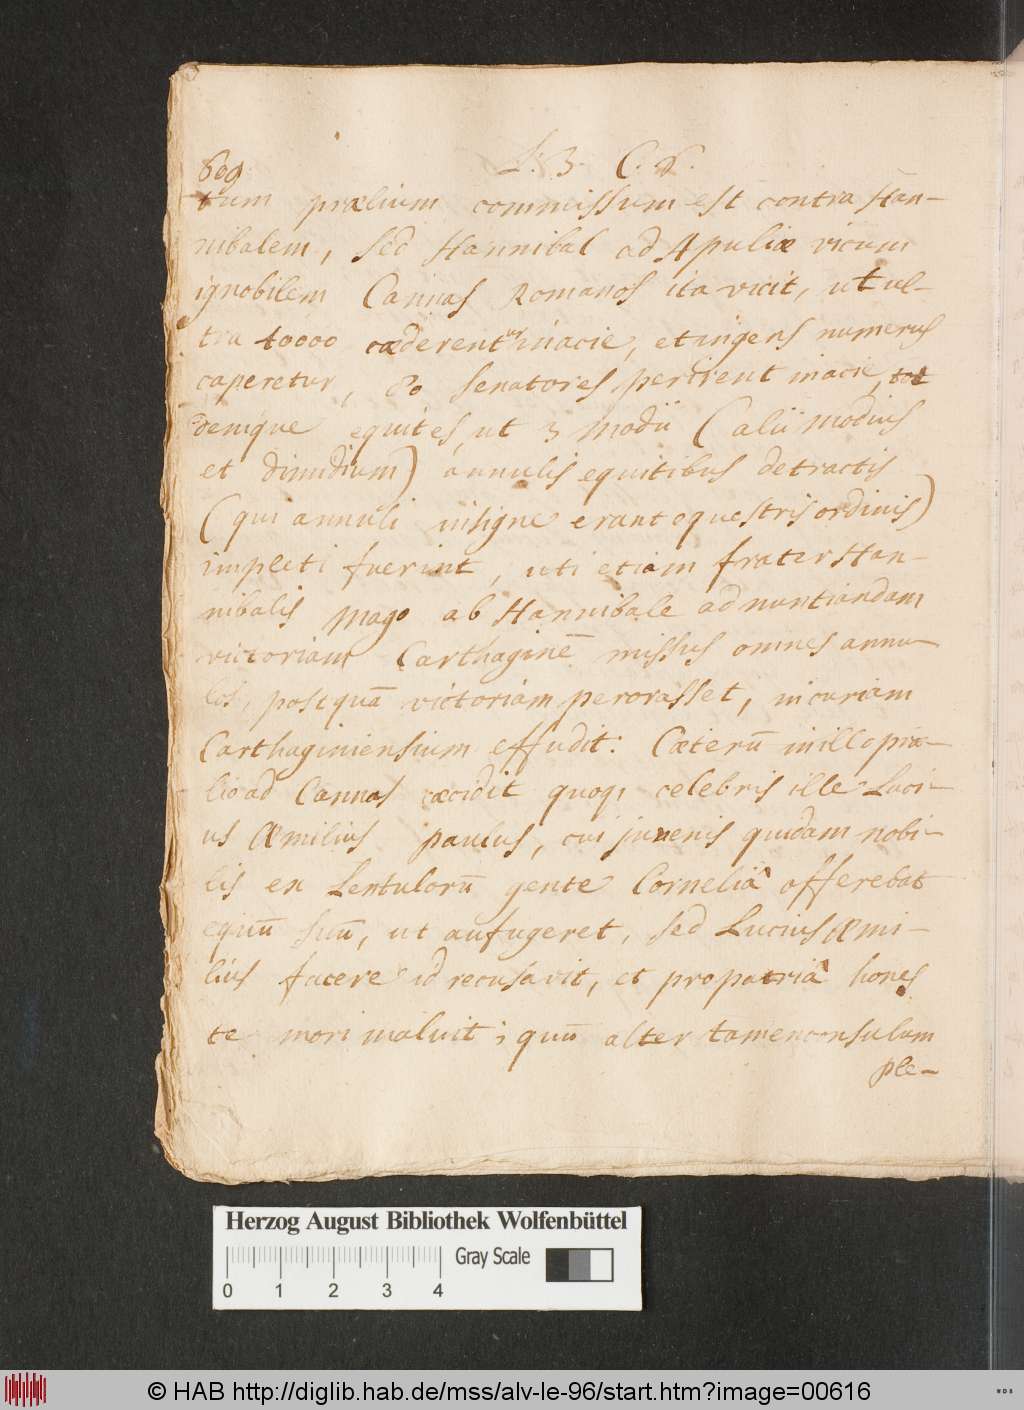 609 L. 3. C. 6.
tum prælium commissum est contra Han-
nibalem, sed Hannibal ad Apuliæ vicum
ignobilem Cannas Romanos ita vicit, ut ul-
tra 40000 cæderentur in acie, et ingens numerus
caperetur, 80 senatores perirent in acie, tot
denique equites, ut 3 modii (alii modius
et dimidium) annulis equitibus detractis
(qui annuli insigne erant equestris ordinis)
impleti fuerint, uti etiam frater Han-
nibalis Mago ab Hannibale ad nuntiandam
victoriam Carthaginē missus omnes annu-
los, postquā victoriam perorasset, in curiam
Carthaginiensium effudit: Cæterū in illo præ-
lio ad Cannas cæcidit quoq; celebris ille Luci-
us Æmilius paulus, cui juvenis quidam nobi-
lis ex Lentulorū gente Cornelia offerebat
equū suū, ut aufugeret, sed Lucius Æmi-
lius facere id recusavit, et pro patriâ hones
te mori maluit; quū alter tamen consulum
ple-
Herzog August Bibliothek Wolfenbüttel
0 1 2 3 4 Gray Scale
© HAB http://diglib.hab.de/mss/alv-le-96/start.htm?image=00616